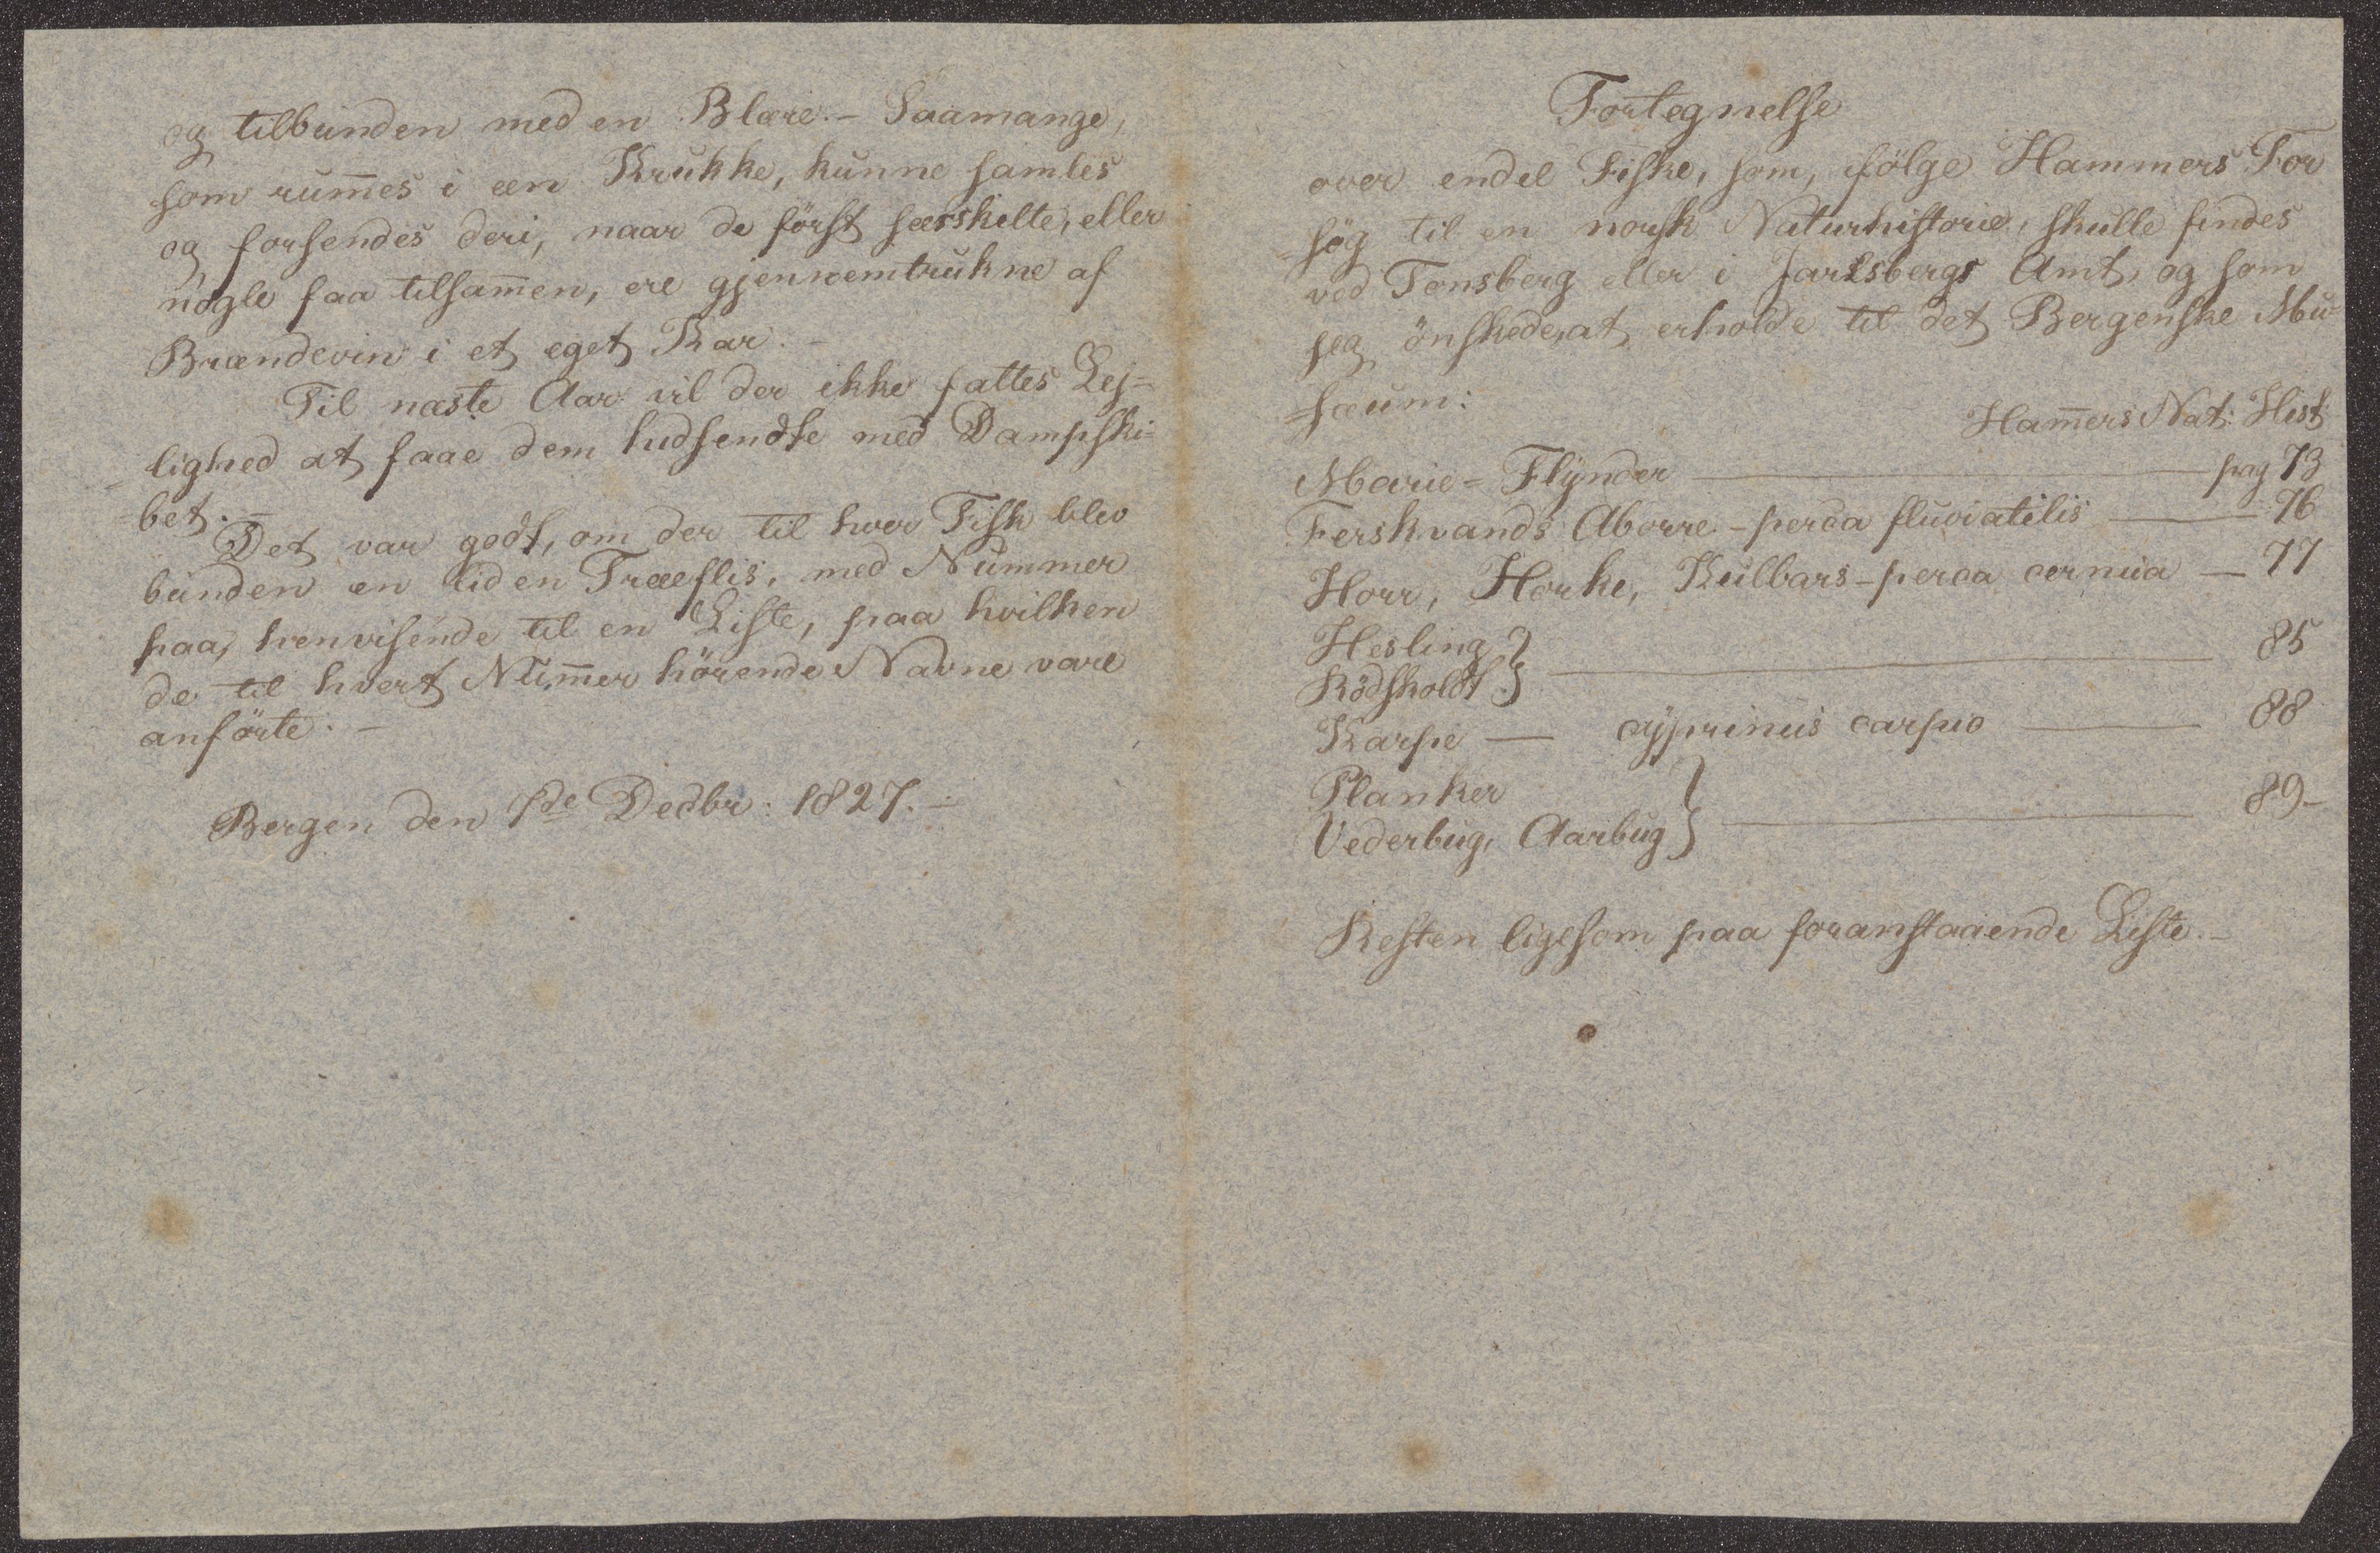 og tilbunden med en Blære. – Saamange,
som rum̅es i een Krukke, kunne samles
og forsendes deri, naar de først særskelte, eller
nogle faa tilsam̅en, ere gjennemtrukne af
Brændeviin i et eget Kar. –
Til næste Aar vil der ikke fattes Lej=
lighed at faae dem hidsendte med Dampski=
=bet. –
Det var godt, om der til hver Fisk blev
bunden en liden Træeflis, med Nummer
paa, henvisende til en Liste, paa hvilken
de til hvert Num̅er hörende Navne vare
anförte. –
Bergen den 7de Decbr: 1827. –
Fortegnelse
over endel Fiske, som, ifölge Hammers For
=søg til en norsk Naturhistorie, skulle findes
ved Tonsberg eller i Jarlsbergs Amt, og som
jeg önskede, at erholde til det Bergenske Mu=
=sæum:
Ham̅ers Nat: Hist:
Marie=Flynder — pag 73
Ferskvands Aborre – perca fluviatilis — 76
Horr, Horke, Kulbars – perca cernua — 77
Hesling }
Rödskoldt } — 85
Karpe — cyprinus carpio — 88
Planker }
Vederbug, Aarbug } — 89 –
Resten ligesom paa foranstaaende Liste. –